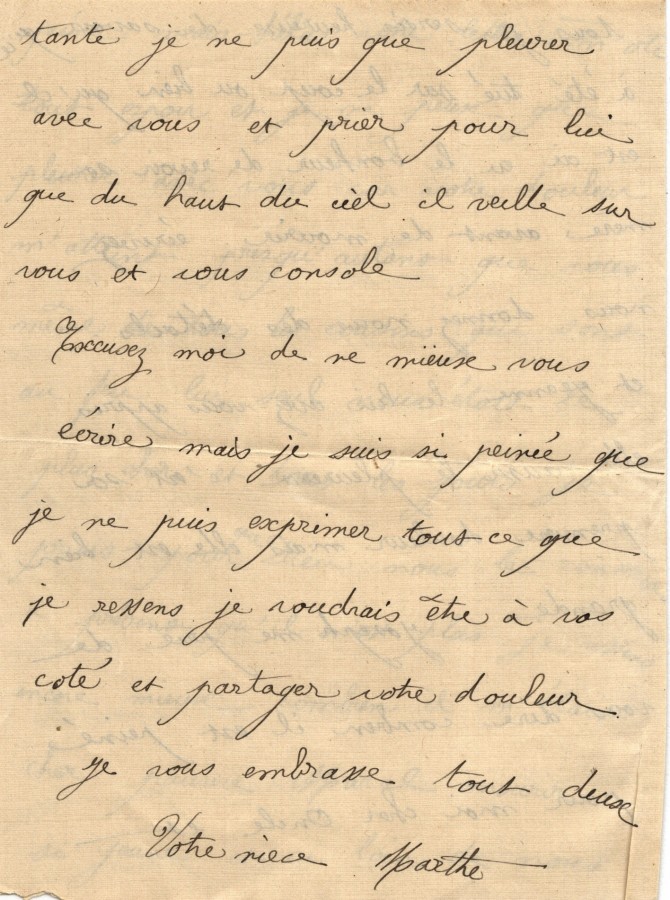 tante je ne puis que pleurer
avec vous et prier pour lui
que du haut du ciel il veille sur
vous et vous console
Excusez moi de ne mieux vous
écrire mais je suis si peinée que
je ne puis exprimer tout ce que
je ressens je voudrais être à vos
coté et partager votre douleur
Je vous embrasse tout deux
Votre nièce Marthe